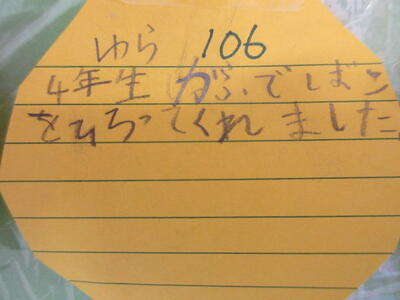 ゆら 106
4年生がふでばこ
をひろってくれました